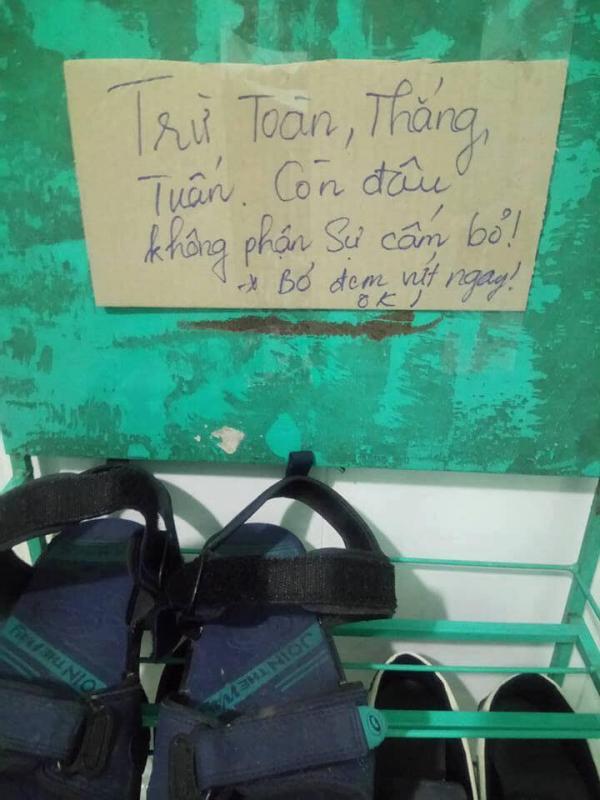 Trừ Toàn, Thắng,
Tuấn. Còn đâu
không phận sự cấm bỏ!
-x Bỏ đem vứt ngay!
OK!
JOIN THE
JOIN THE WAY